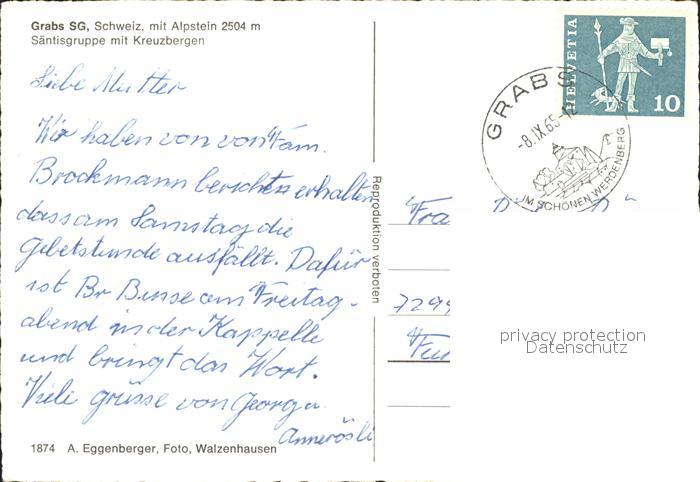 Grabs SG, Schweiz, mit Alpstein 2504 m
Säntisgruppe mit Kreuzbergen
Liebe Mutter
Wir haben von von Fam.
Brockmann berschtzn erhalten
dass am Samstag die
Gebetstunde ausfällt. Dafür
ist Br Busse am Freitag-
abend in der Kappelle
und bringt das Wort.
Viele grüsse von Georg u.
Annerösli
1874 A. Eggenberger, Foto, Walzenhausen
Reproduktion verboten
HELVETIA
10
GRABS
-8.IX.65-12
IM SCHÖNEN WERDENBERG
Fra
7299
Fu
privacy protection
Datenschutz